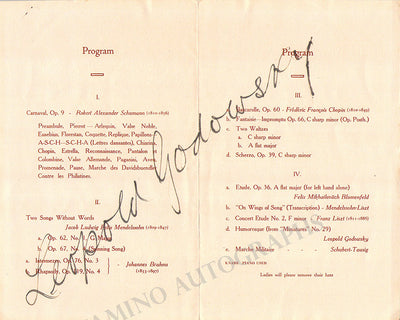 Program
I.
Carnaval, Op. 9 - Robert Alexander Schumann (1810-1856)
Preambule, Pierrot — Arlequin, Valse Noble,
Eusebius, Florestan, Coquette, Replique, Papillons-
A-S-C-H—S-C-H-A (Lettres dansantes), Chiarina,
Chopin, Estrella, Reconnaissance, Pantalon et
Colombine, Valse Allemande, Paganini, Aveu,
Promenade, Pause, Marche des Davidsbuendler
Contre les Philistines.
II.
Two Songs Without Words
Jacob Ludwig Felix Mendelssohn (1809-1847)
a. Op. 62, No. 1, G Major
b. Op. 67, No. 4 (Spinning Song)
a. Intermezzo, Op. 76, No. 3
b. Rhapsody, Op. 119, No. 4
Johannes Brahms
(1833-1897)
Program
III.
a. Barcarolle, Op. 60 - Frédéric François Chopin (1810-1849)
b. Fantaisie—Impromptu Op. 66, C sharp minor (Op. Posth.)
c. Two Waltzes
a. C sharp minor
b. A flat major
d. Scherzo, Op. 39, C sharp minor
IV.
a. Etude, Op. 36, A flat major (for left hand alone)
Felix Mikhailovich Blumenfeld
b. "On Wings of Song" (Transcription) - Mendelssohn-Liszt
c. Concert Etude No. 2, F minor - Franz Liszt (1811-1886)
d. Humoresque (from "Miniatures" No. 29)
Leopold Godowsky
e. Marche Militaire - Schubert-Tausig
KNABE PIANO USED
Ladies will please remove their hats
Leopold Godowsky
TAMINO AUTOGRAPHS